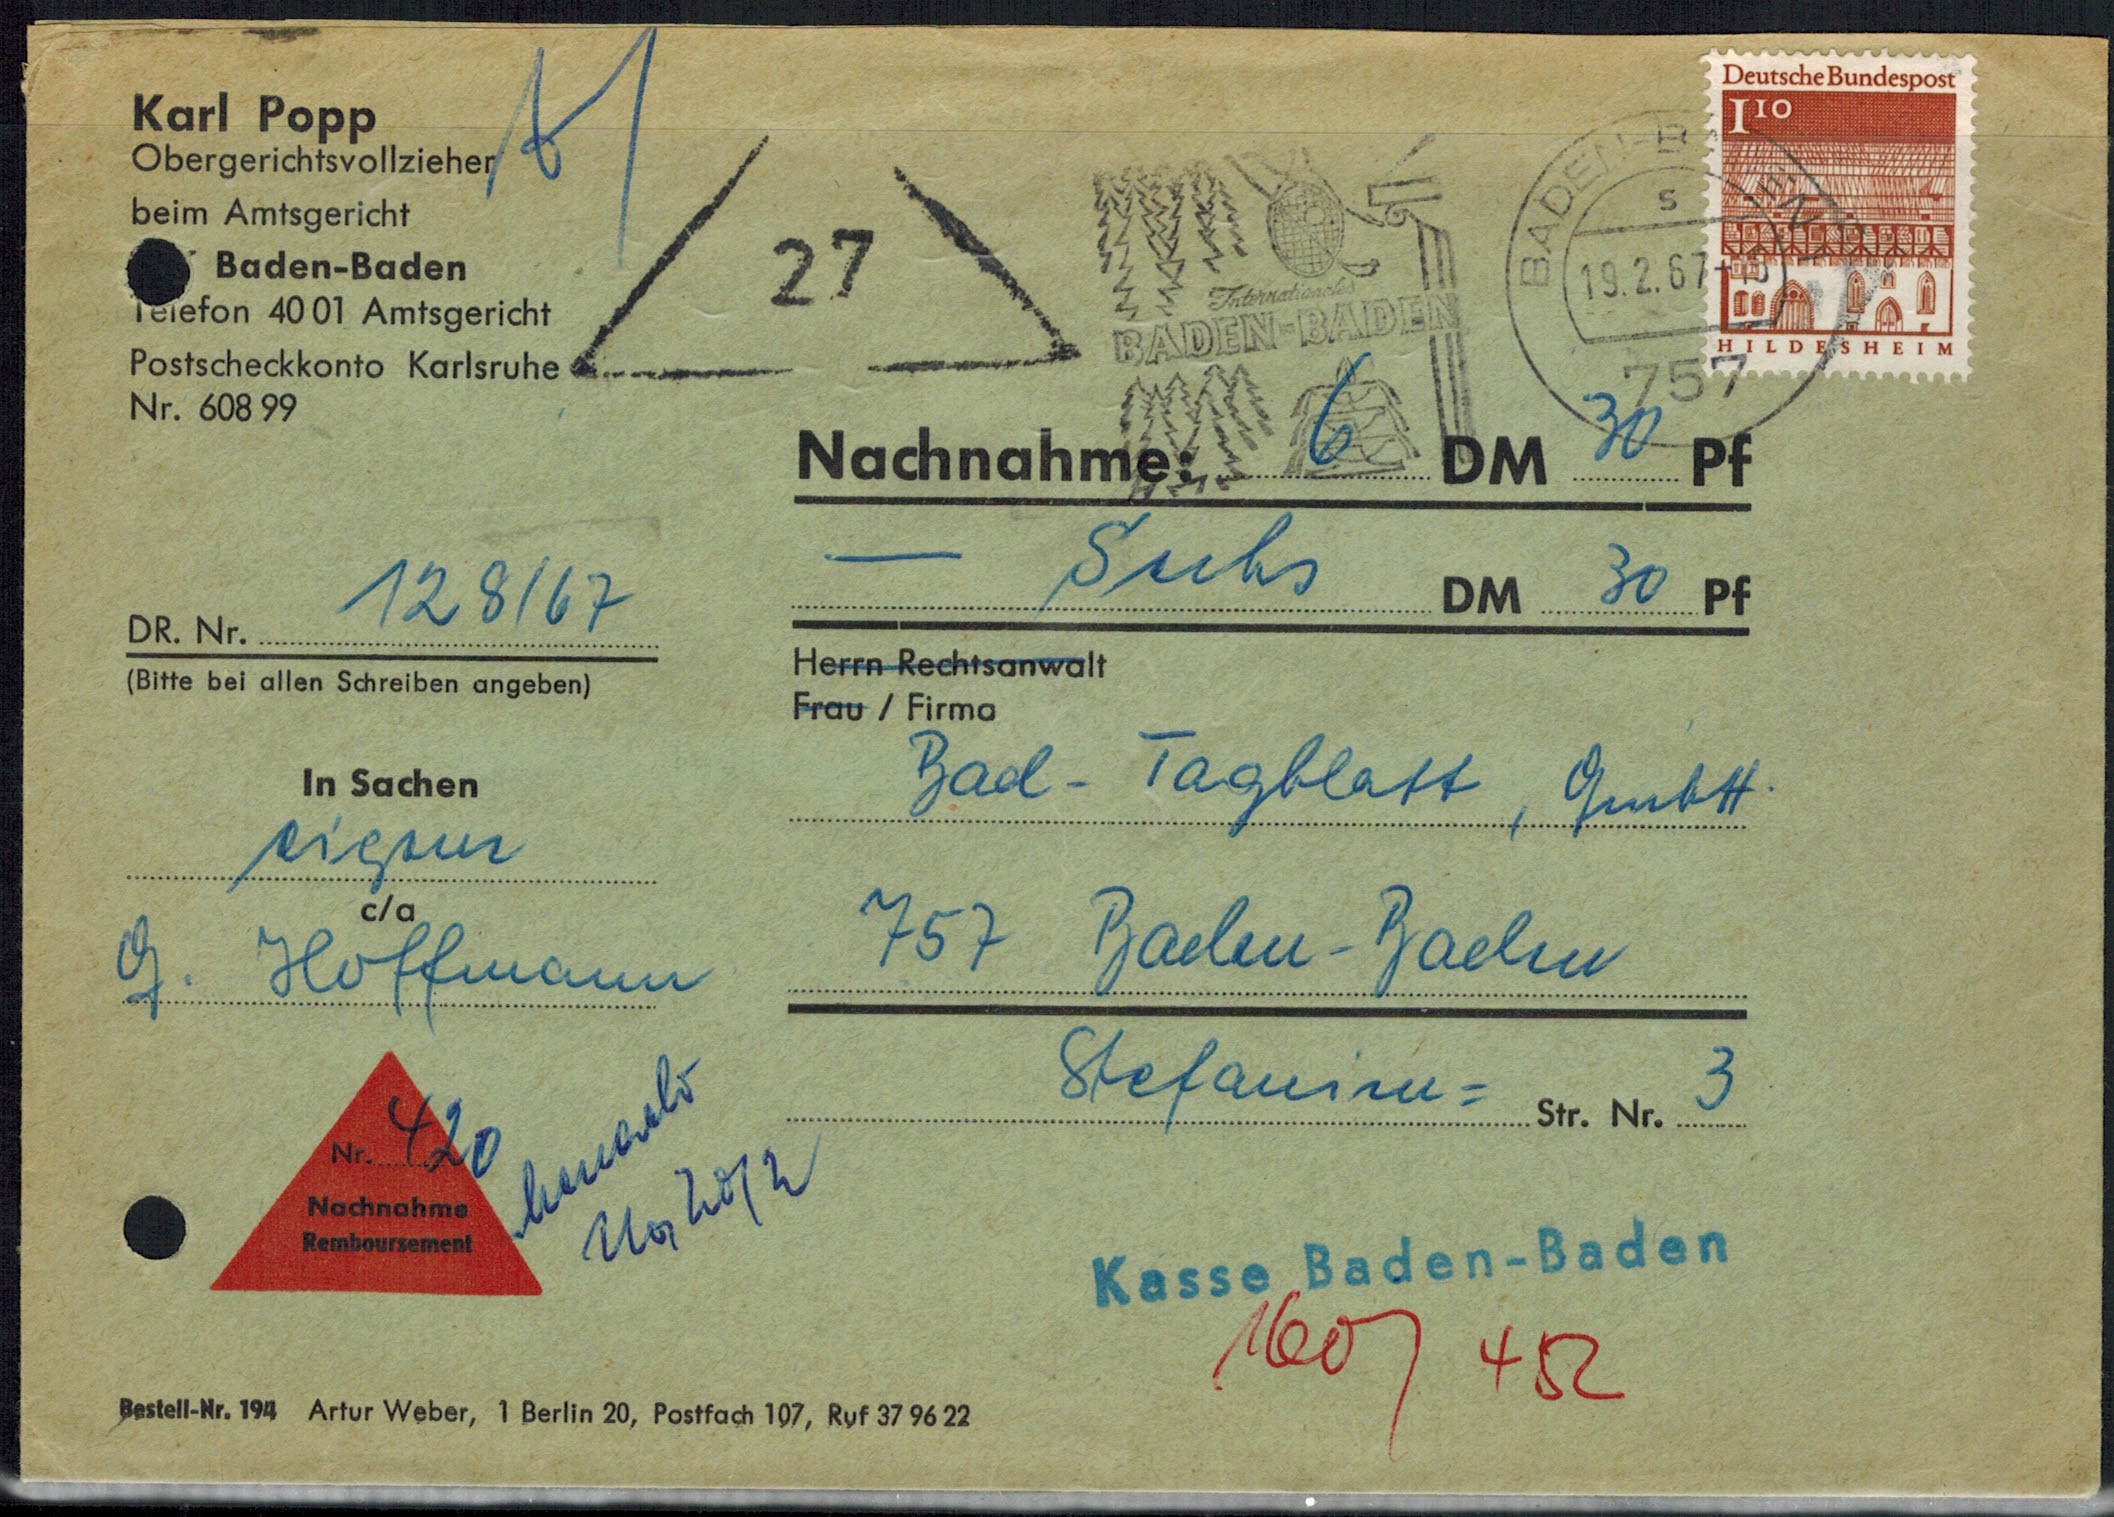 Karl Popp
Obergerichtsvollzieher
beim Amtsgericht
Baden-Baden
Telefon 40 01 Amtsgericht
Postscheckkonto Karlsruhe
Nr. 608 99
27
Internationales
BADEN-BADEN
BADEN-BADEN
s
19.2.67
757
Deutsche Bundespost
1 10
HILDESHEIM
Nachnahme: 6 DM 30 Pf
— Sechs DM 30 Pf
DR. Nr. 128/67
(Bitte bei allen Schreiben angeben)
Herrn Rechtsanwalt
Frau / Firma
Bad - Tagblatt, GmbH.
757 Baden-Baden
Stefanien= Str. Nr. 3
In Sachen
eigener
c/a
G. Hoffmann
Nr. 420
Nachnahme
Remboursement
Kasse Baden-Baden
160 452
Bestell-Nr. 194 Artur Weber, 1 Berlin 20, Postfach 107, Ruf 37 96 22